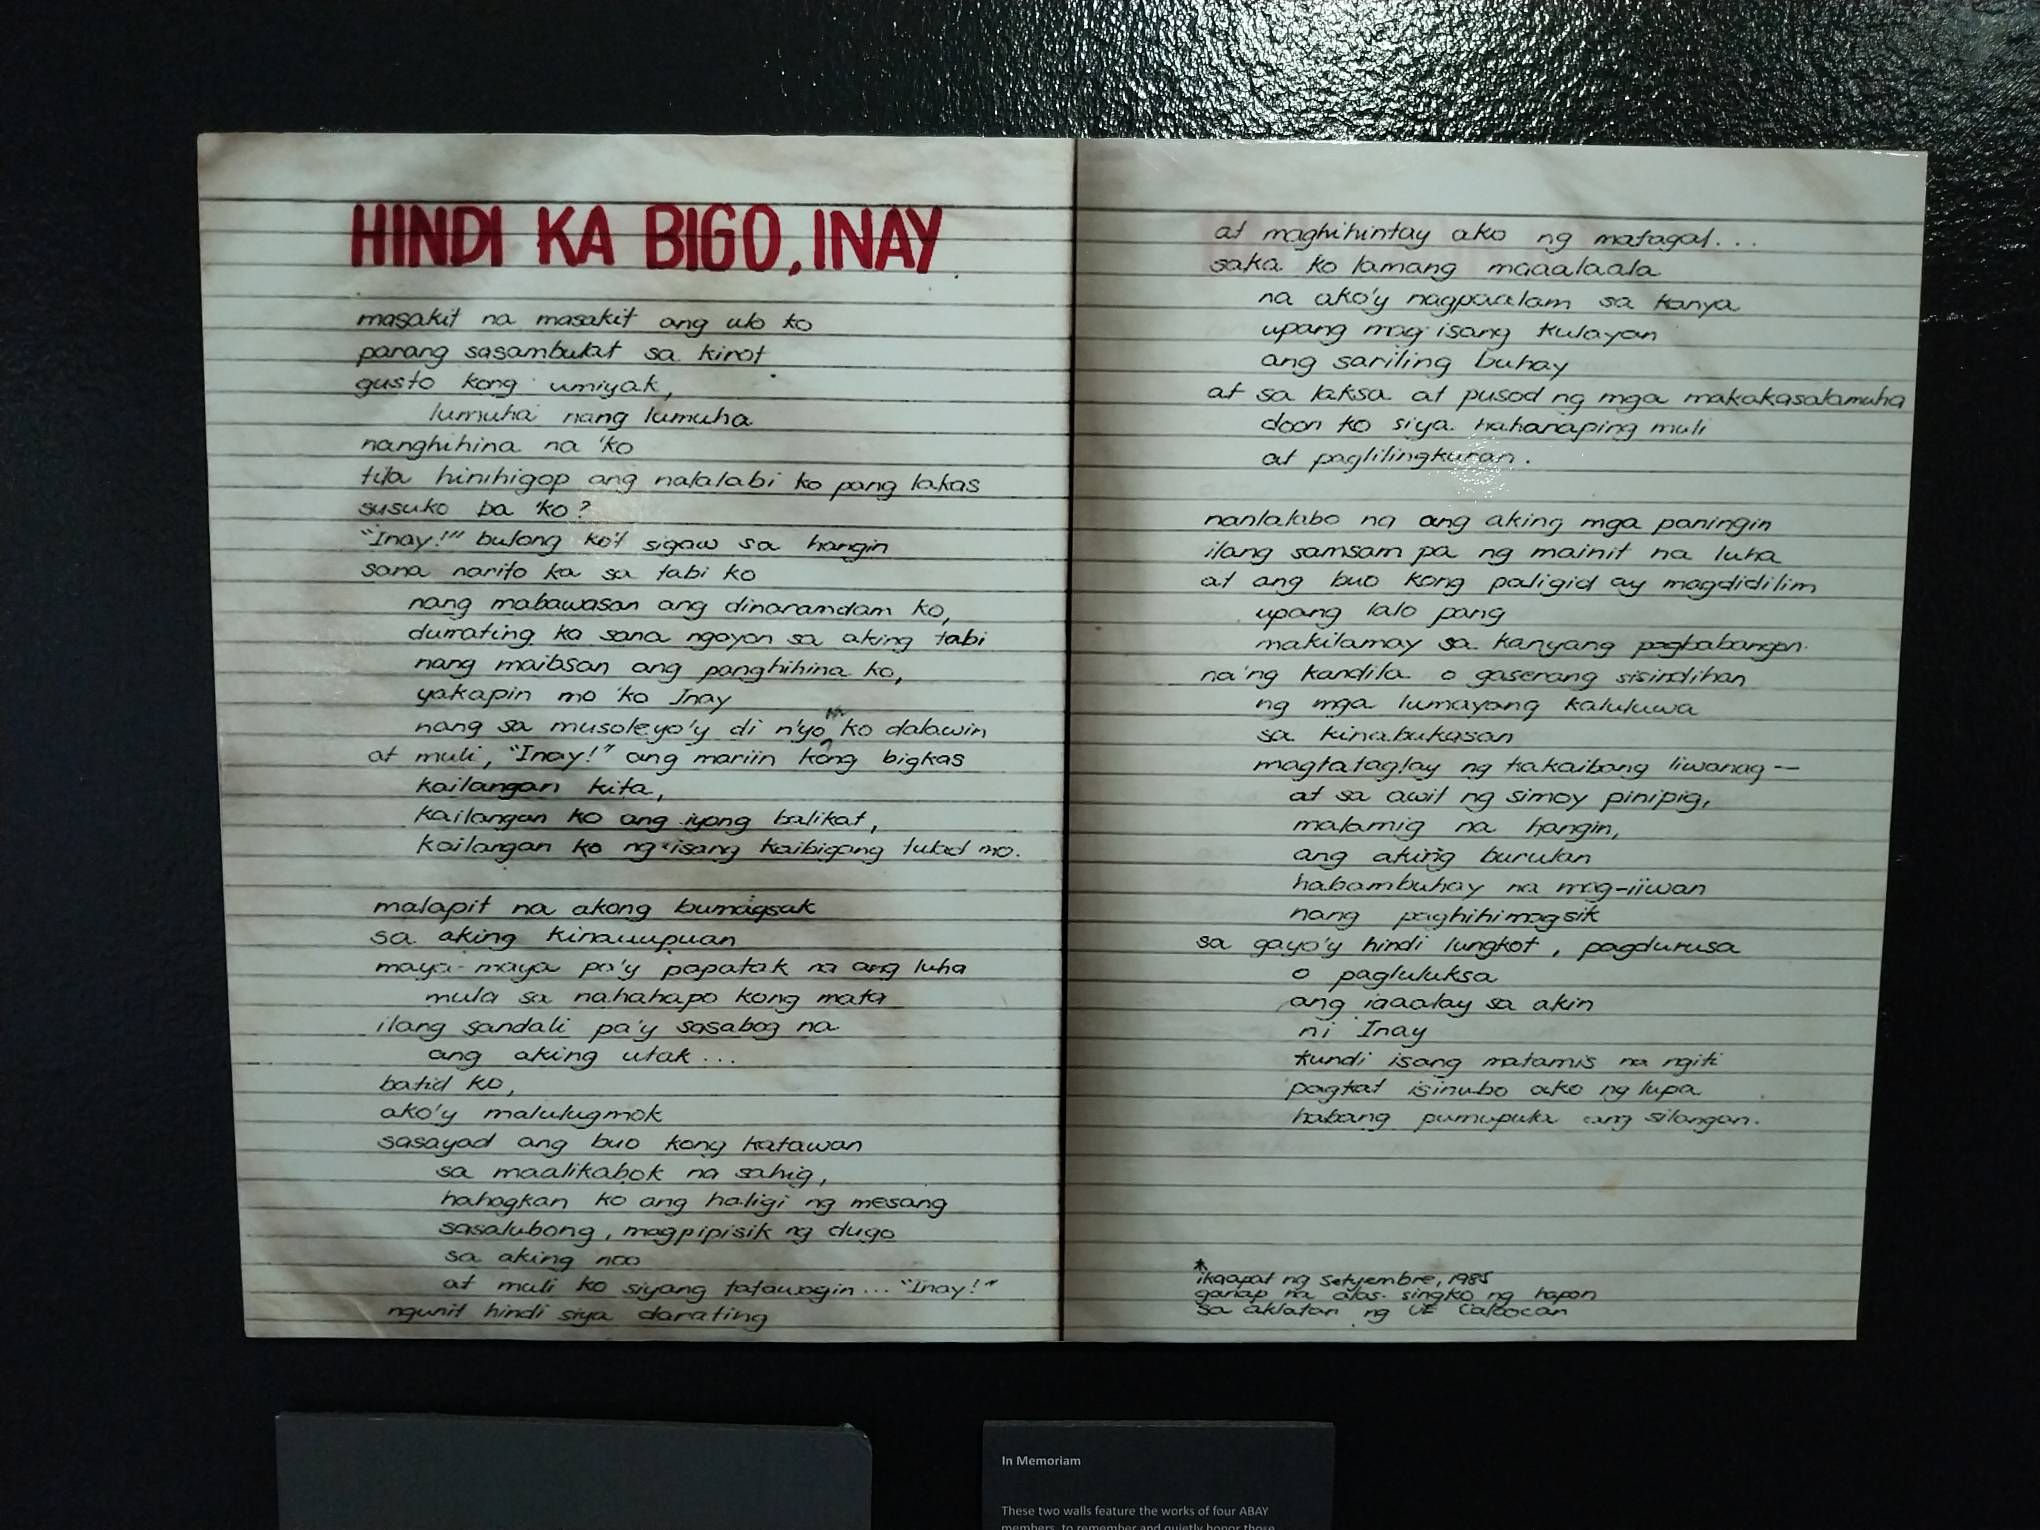 HINDI KA BIGO, INAY
masakit na masakit ang ulo ko
parang sasambulat sa kirot
gusto kong umiyak,
lumuha nang lumuha
nanghihina na 'ko
tila hinihigop ang nalalabi ko pang lakas
susuko ba 'ko?
"Inay!" bulong ko't sigaw sa hangin
sana narito ka sa tabi ko
nang mabawasan ang dinaramdam ko,
dumating ka sana ngayon sa aking tabi
nang maibsan ang panghihina ko,
yakapin mo 'ko Inay
nang sa musoleyo'y di n'yo ko dalawin
at muli, "Inay!" ang mariin kong bigkas
kailangan kita,
kailangan ko ang iyong balikat,
kailangan ko ng isang kaibigang tulad mo.
malapit na akong bumagsak
sa aking kinauupuan
maya-maya pa'y papatak na ang luha
mula sa nahahapo kong mata
ilang sandali pa'y sasabog na
ang aking utak...
batid ko,
ako'y malulugmok
sasayad ang buo kong katawan
sa maalikabok na sahig,
hahagkan ko ang haligi ng mesang
sasalubong, magpipisik ng dugo
sa aking noo
at muli ko siyang tatawagin... "Inay!"
ngunit hindi siya darating
at maghihintay ako ng matagal...
saka ko lamang maaalaala
na ako'y nagpaalam sa kanya
upang mag-isang kulayan
ang sariling buhay
at sa laksa at pusod ng mga makakasalamuha
doon ko siya hahanaping muli
at paglilingkuran.
nanlalabo na ang aking mga paningin
ilang samsam pa ng mainit na luha
at ang buo kong paligid ay magdidilim
upang lalo pang
makilamay sa kanyang pagbabangon
na'ng kandila o gaserang sisindihan
ng mga lumayang kaluluwa
sa kinabukasan
magtataglay ng kakaibang liwanag—
at sa awit ng simoy pinipig,
malamig na hangin,
ang aking burulan
habambuhay na mag-iiwan
nang paghihimagsik
sa gayo'y hindi lungkot, pagdurusa
o pagluluksa
ang iaaalay sa akin
ni Inay
kundi isang matamis na ngiti
pagkat isinubo ako ng lupa
habang pumupula ang silangan.
*ikaapat ng Setyembre, 1985
ganap na alas-singko ng hapon
sa aklatan ng UE Caloocan
In Memoriam
These two walls feature the works of four ABAY
members, to remember and quietly honor those